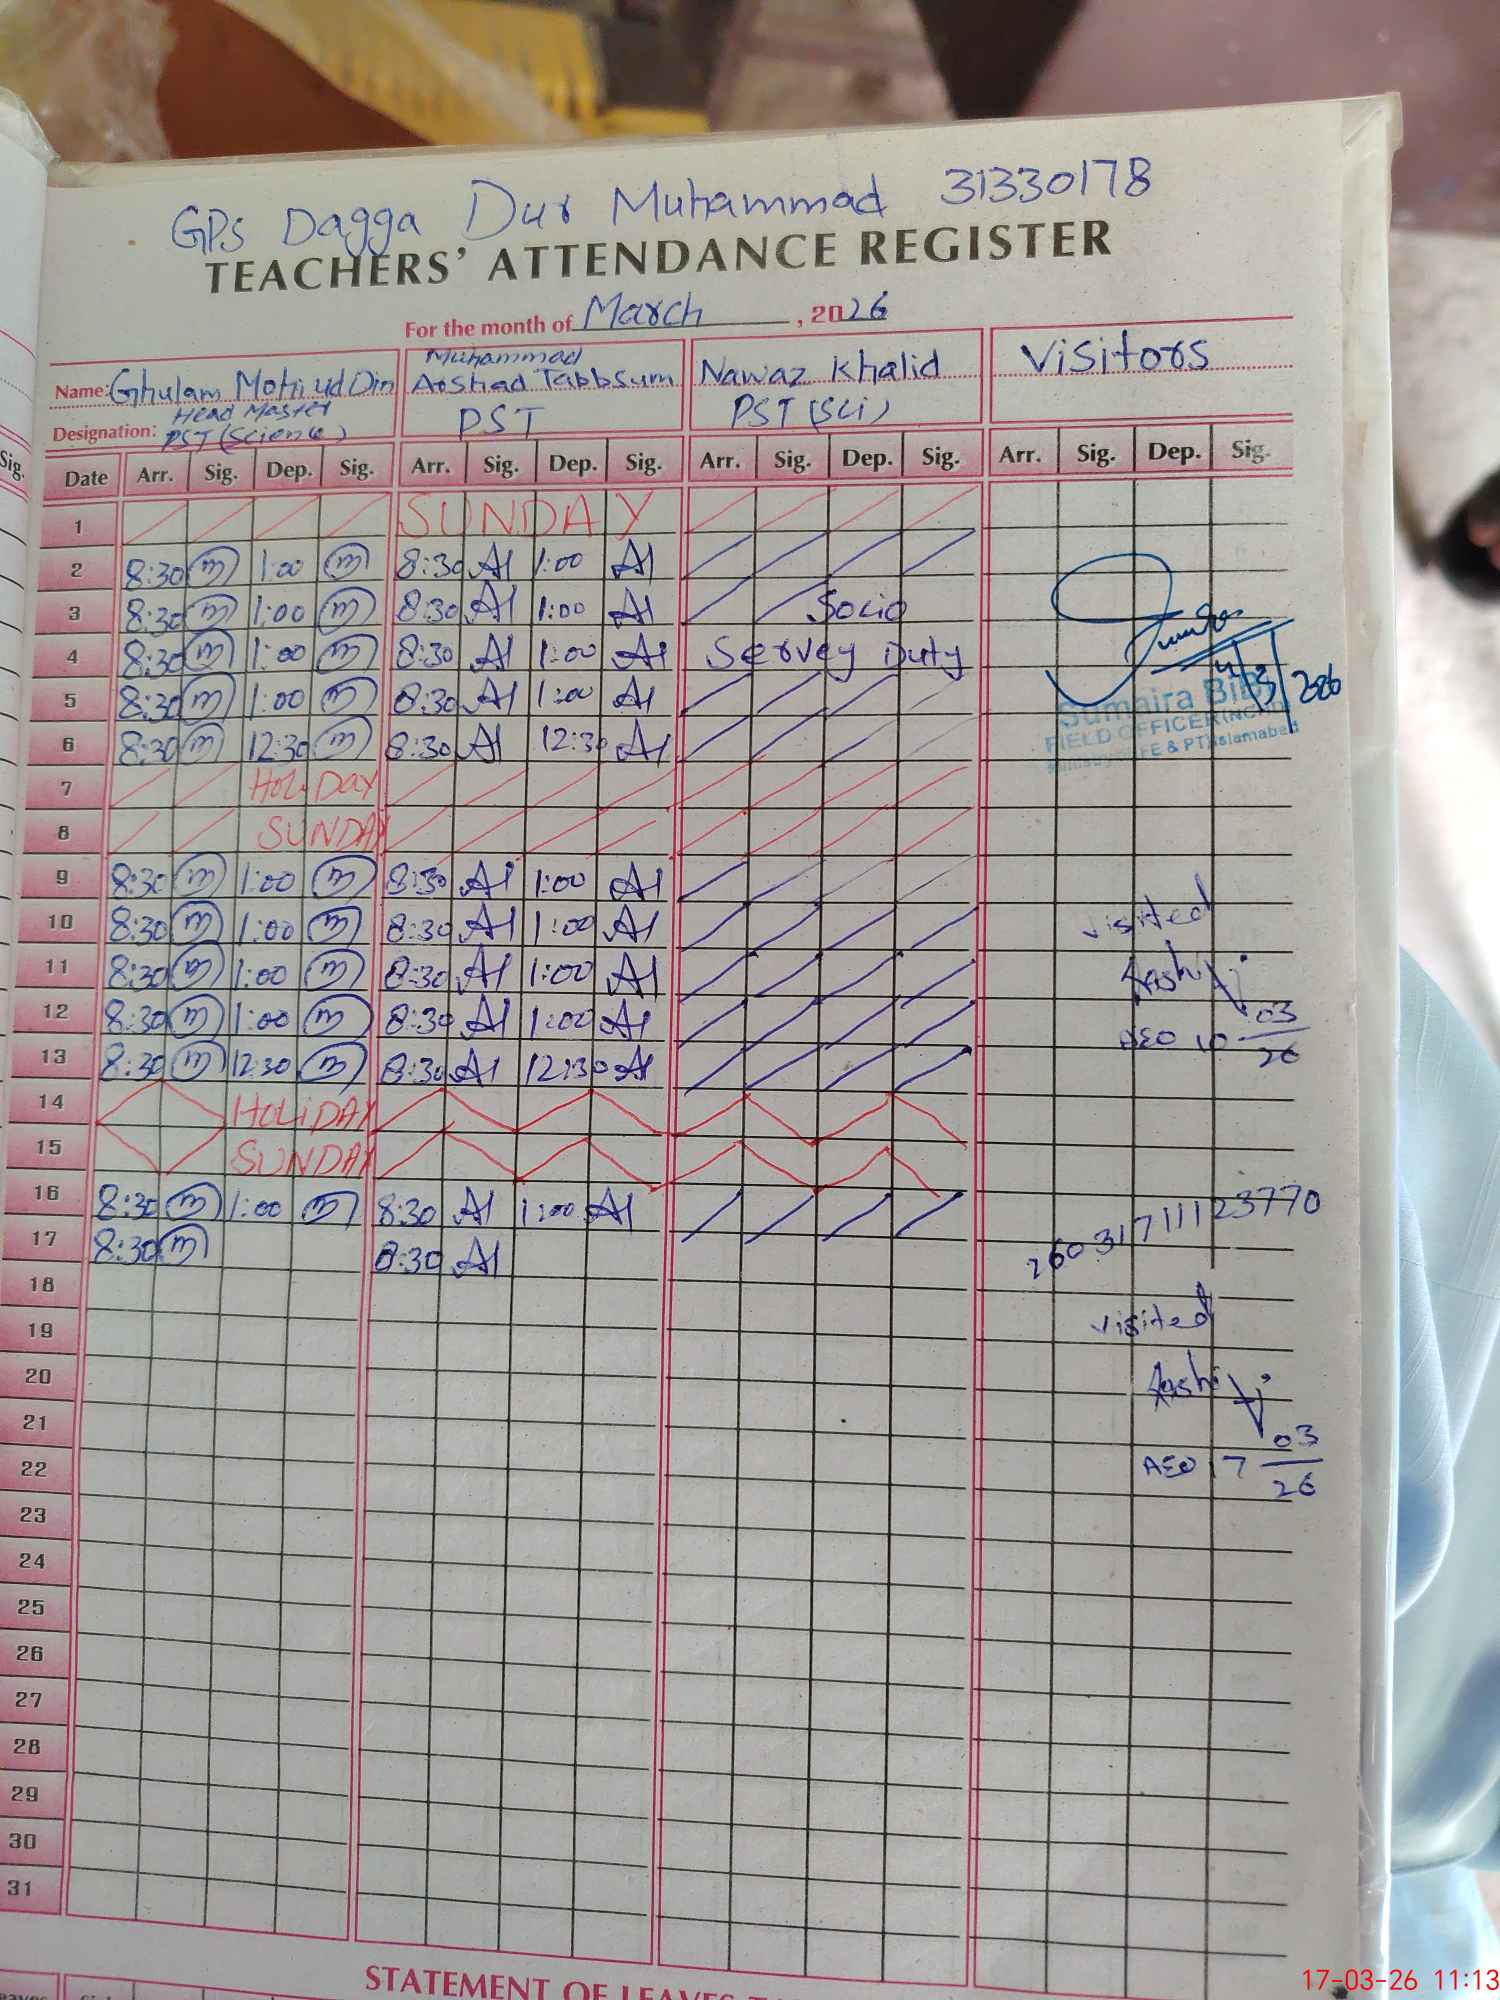 GPS Dagga Dur Muhammad 31330178
TEACHERS' ATTENDANCE REGISTER
For the month of March, 2026
Name: Ghulam Mohi ud Din Muhammad Arshad Tabbsum Nawaz Khalid Visitors
Designation: Head Master PST (Science) PST PST (Sci)
Sig.
Date Arr. Sig. Dep. Sig. Arr. Sig. Dep. Sig. Arr. Sig. Dep. Sig. Arr. Sig. Dep. Sig.
1 SUNDAY
2 8:30 m 1:00 m 8:30 At 1:00 At
3 8:30 m 1:00 m 8:30 At 1:00 At Socio
4 8:30 m 1:00 m 8:30 At 1:00 At Servey Duty
5 8:30 m 1:00 m 8:30 At 1:00 At
6 8:30 m 12:30 m 8:30 At 12:30 At
Sumaira Bibi
FIELD OFFICER INCHARGE
FE & PT Islamabad
7 HOLIDAY
8 SUNDAY
9 8:30 m 1:00 m 8:30 At 1:00 At
10 8:30 m 1:00 m 8:30 At 1:00 At visited
11 8:30 m 1:00 m 8:30 At 1:00 At
12 8:30 m 1:00 m 8:30 At 1:00 At
13 8:30 m 12:30 m 8:30 At 12:30 At AEO 10 03/26
14 HOLIDAY
15 SUNDAY
16 8:30 m 1:00 m 8:30 At 1:00 At
17 8:30 m 8:30 At 260317111123770
18
19 visited
20
21
22 AEO 17 03/26
23
24
25
26
27
28
29
30
31
17-03-26 11:13